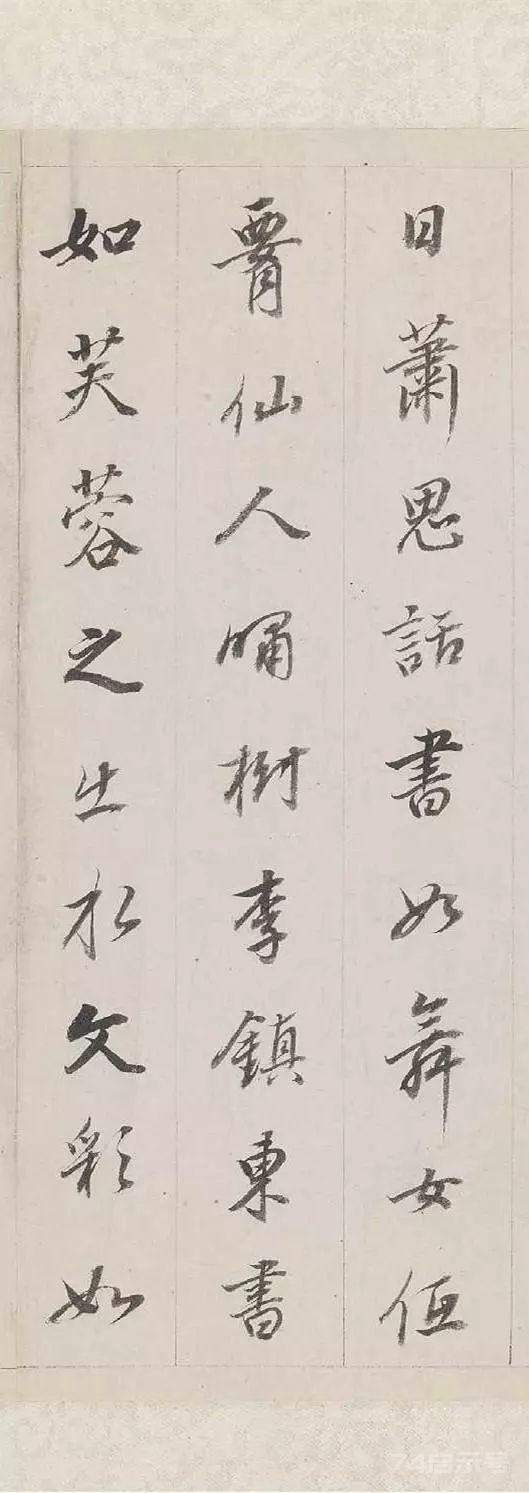 日蕭思話書如舞女低
署仙人嘯樹李鎮東書
如芙蓉之出水文彩如